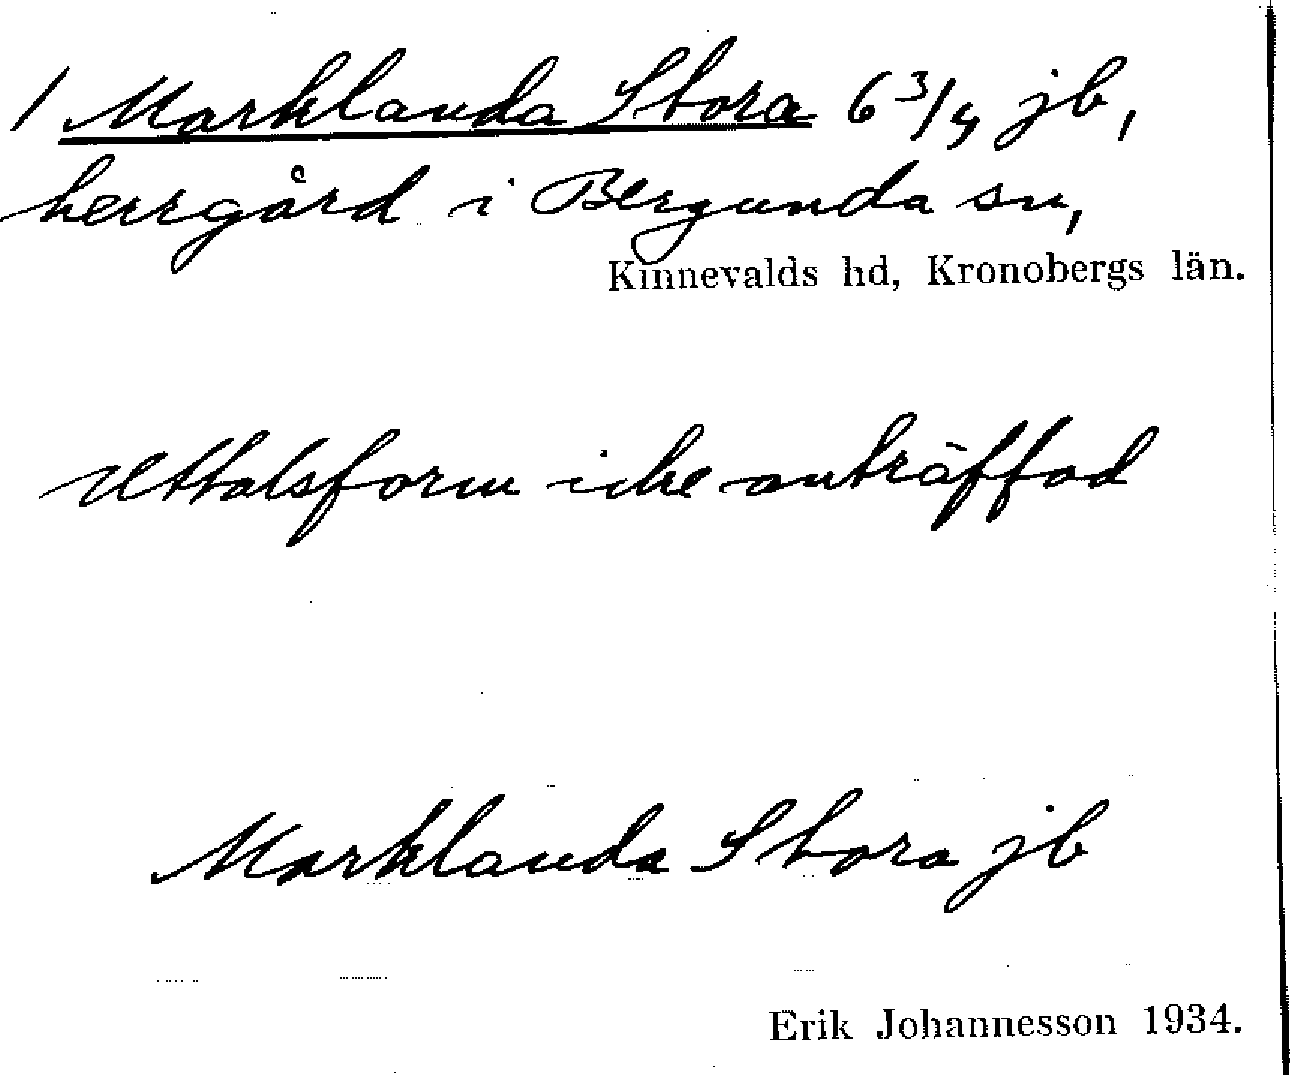 / Marklanda Stora 6 3/4 jb,
herrgård i Bergunda sn,
Kinnevalds hd, Kronobergs län.
Uttalsform icke anträffad
Marklanda Stora jb
Erik Johannesson 1934.